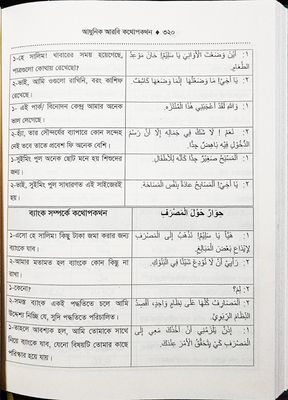 আধুনিক আরবি কথোপকথন ♦ ৩২০
১-হে সালিম! খাবারের সময় হয়েগেছে,
পাত্রগুলো কোথায় রেখেছো?
١: أَيْنَ وَضَعْتَ الْأَوَانِيَ يَا سَلِيْمُ! حَانَ مَوْعِدُ
الطَّعَامِ.
২-ভাই, আমি ওগুলো রাখিনি, বরং কাশিফ
রেখেছে।
٢: يَا أَخِيْ! مَا وَضَعْتُهَا إِنَّمَا وَضَعَهَا كَاشِفُ.
১- এই পার্ক/ বিনোদন কেন্দ্র আমার অনেক
ভাল লেগেছে।
١: وَاللهِ لَقَدْ أَعْجَبَنِيْ هَذَا الْمُنْتَزَهُ.
২-হাঁ, তার সৌন্দর্যের ব্যাপারে কোন সন্দেহ
নেই তবে তাতে প্রবেশ ফি অনেক বেশি।
٢: نَعَمْ! لَا شَكَّ فِيْ جَمَالِهِ إِلَّا أَنَّ رَسْمَ
الدُّخُوْلِ فِيْهِ بَاهِضٌ جِدًّا.
১-সুইমিং পুল অনেক ছোট মনে হয় শিশুদের
জন্য।
١: الْمَسْبَحُ صَغِيْرٌ جِدًّا كَأَنَّهُ لِلْأَطْفَالِ.
২-ভাই, সুইমিং পুল সাধারণত এই সাইজেরই
হয়।
٢: يَا أَخِيْ! الْمَسَابِحُ عَادَةً بِنَفْسِ الْمَسَاحَةِ.
ব্যাংক সম্পর্কে কথোপকথন
حِوَارٌ حَوْلَ الْمَصْرَفِ
১-এসো হে সালিম! কিছু টাকা জমা করার জন্য
ব্যাংকে যাব।
١: هَيَّا يَا سَلِيْمُ! نَذْهَبُ إِلَى الْمَصْرَفِ
لِإِيْدَاعِ بَعْضِ الْمَبَالِغِ.
২-আমার মতামত হল ব্যাংকে কোন কিছু না
রাখা।
٢: رَأْيِيْ أَنْ لَا نُوْدِعَ شَيْئًا فِي الْبُنُوْكِ.
১-কেনো?
٢: لِمَ؟
২-সমস্ত ব্যাংক একই পদ্ধতিতে চলে আমি
উদ্দেশ্য নিচ্ছি যে, সুদি পদ্ধতিতে পরিচালিত।
٢: الْمَصَارِفُ كُلُّهَا عَلَى نِظَامٍ وَاحِدٍ، أَقْصِدُ
النِّظَامَ الرِّبَوِيَّ.
১-তাহলে আবশ্যক হল, আমি তোমাকে সাথে
নিয়ে ব্যাংকে যাব, যেনো বিষয়টি তোমার কাছে
পরিস্কার হয়ে যায়।
١: إِذَنْ يَلْزَمُنِيْ أَنْ آخُذَكَ مَعِيْ إِلَى
الْمَصْرَفِ كَيْ يَتَحَقَّقَ الْأَمْرُ عِنْدَكَ.